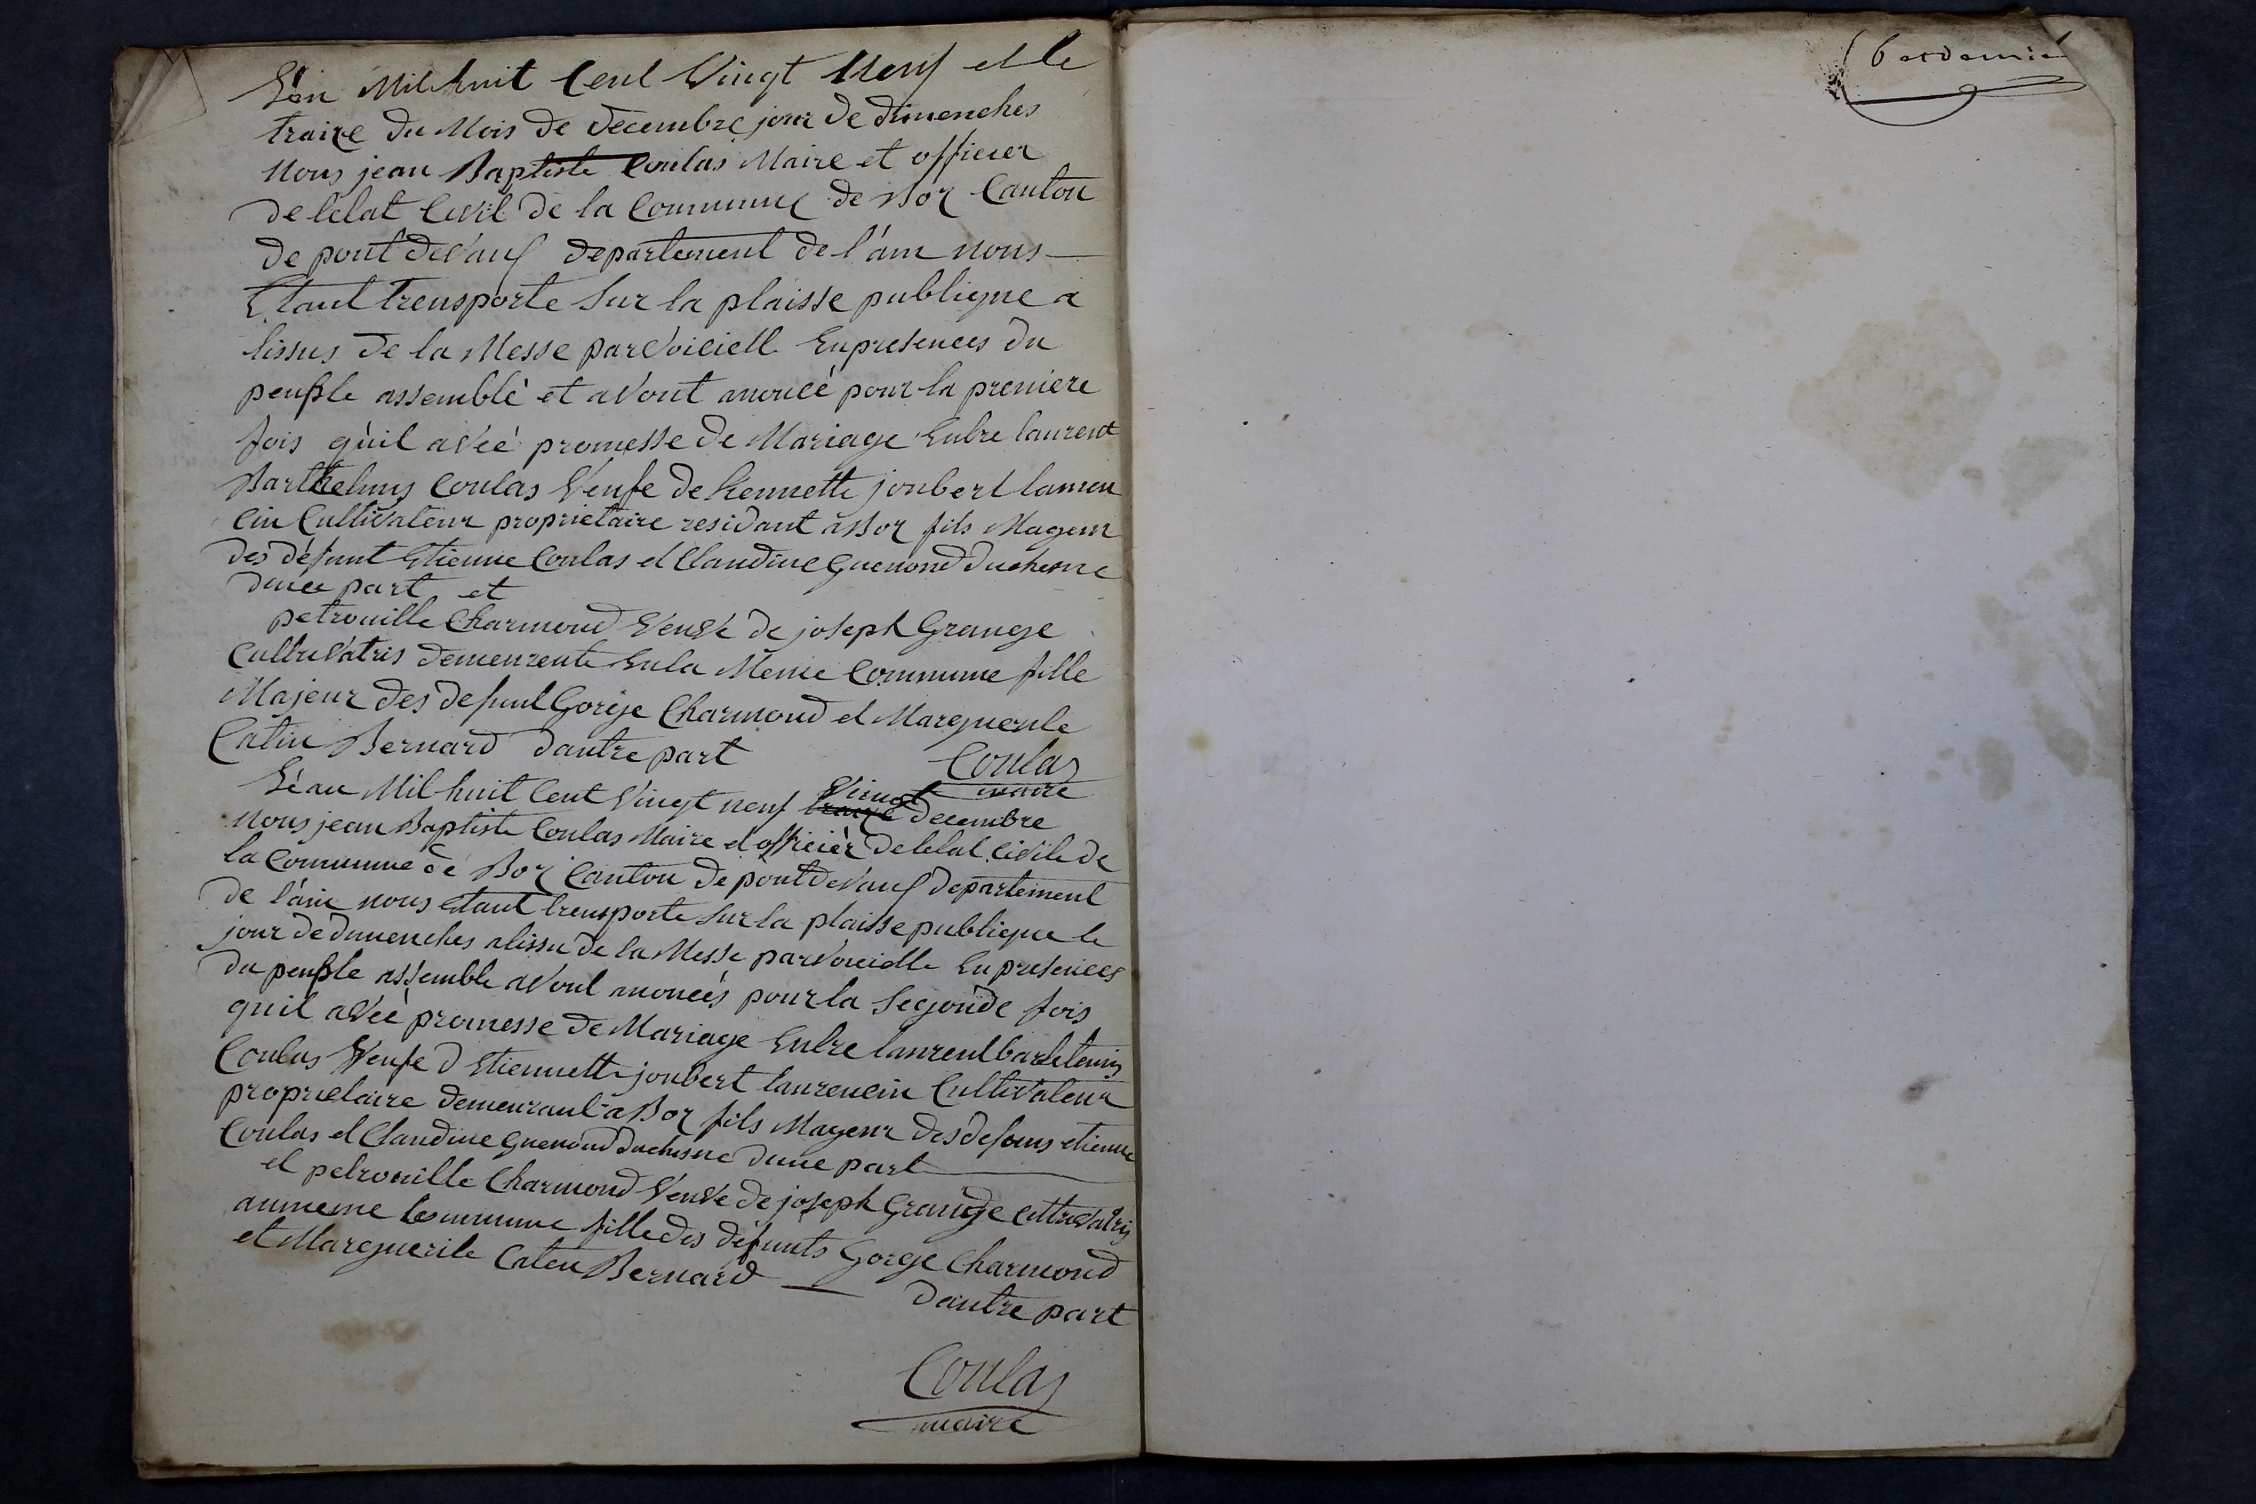 L'én Mil huit Cent Vingt Neuf et le
traize du Mois de decembre jour de dimenches
Nous jean Baptiste Coulas Maire et officier
de lelat Civil de la Commune de Boz Canton
de pont deVaux departement de l'ain nous
Etant trensporte Sur la plaisse publique a
lissus de la Messe parVoiciell Enpresences du
peuple assemblé et aVont anoncé pour la premiere
fois qùil aVéé promesse de Mariage Entre laurent
Barthelmy Coulas Veufe de Etiennette joubert lauren
cin Cultivateur proprietaire residant a Boz fils Mageur
des défunt Etienne Coulas et Claudine Guenond duchesne
dunee part et
petronille Charmond VeuVe de joseph Grange
CultriVatris demeurente Enla Meme Commune fille
Majeur des defunt Gorge Charmond et Marguerite
Catin Bernard dautre part
Coulas
maire
Léan Mil huit Cent Vingt neuf Vingt traize decembre
Nous jean Baptiste Coulas Maire et officièr de lelat Civile de
la Commune de Boz Canton de pont deVaux departement
de l'ain nous etant trensporte Sur la plaisse publique le
jour de dimenches alissu de la Messe parVoicielle En presences
du peuple assemble aVont anoncés pour la Segonde fois
quil aVéé promesse de Mariage Entre laurent bartelemis
Coulas Veufe d Etiennette joubert laurencin CultiVateur
proprietaire demeurant a Boz fils Mageur des defuns etienne
Coulas et Claudine Guenond duchesne dune part
et petronille Charmond VeuVe de joseph Grange CultriVatris
aumeme Commune fille des défunts Gorge Charmond
et Marguerite Caten Bernard
dautre part
Coulas
maire
6 et dernie